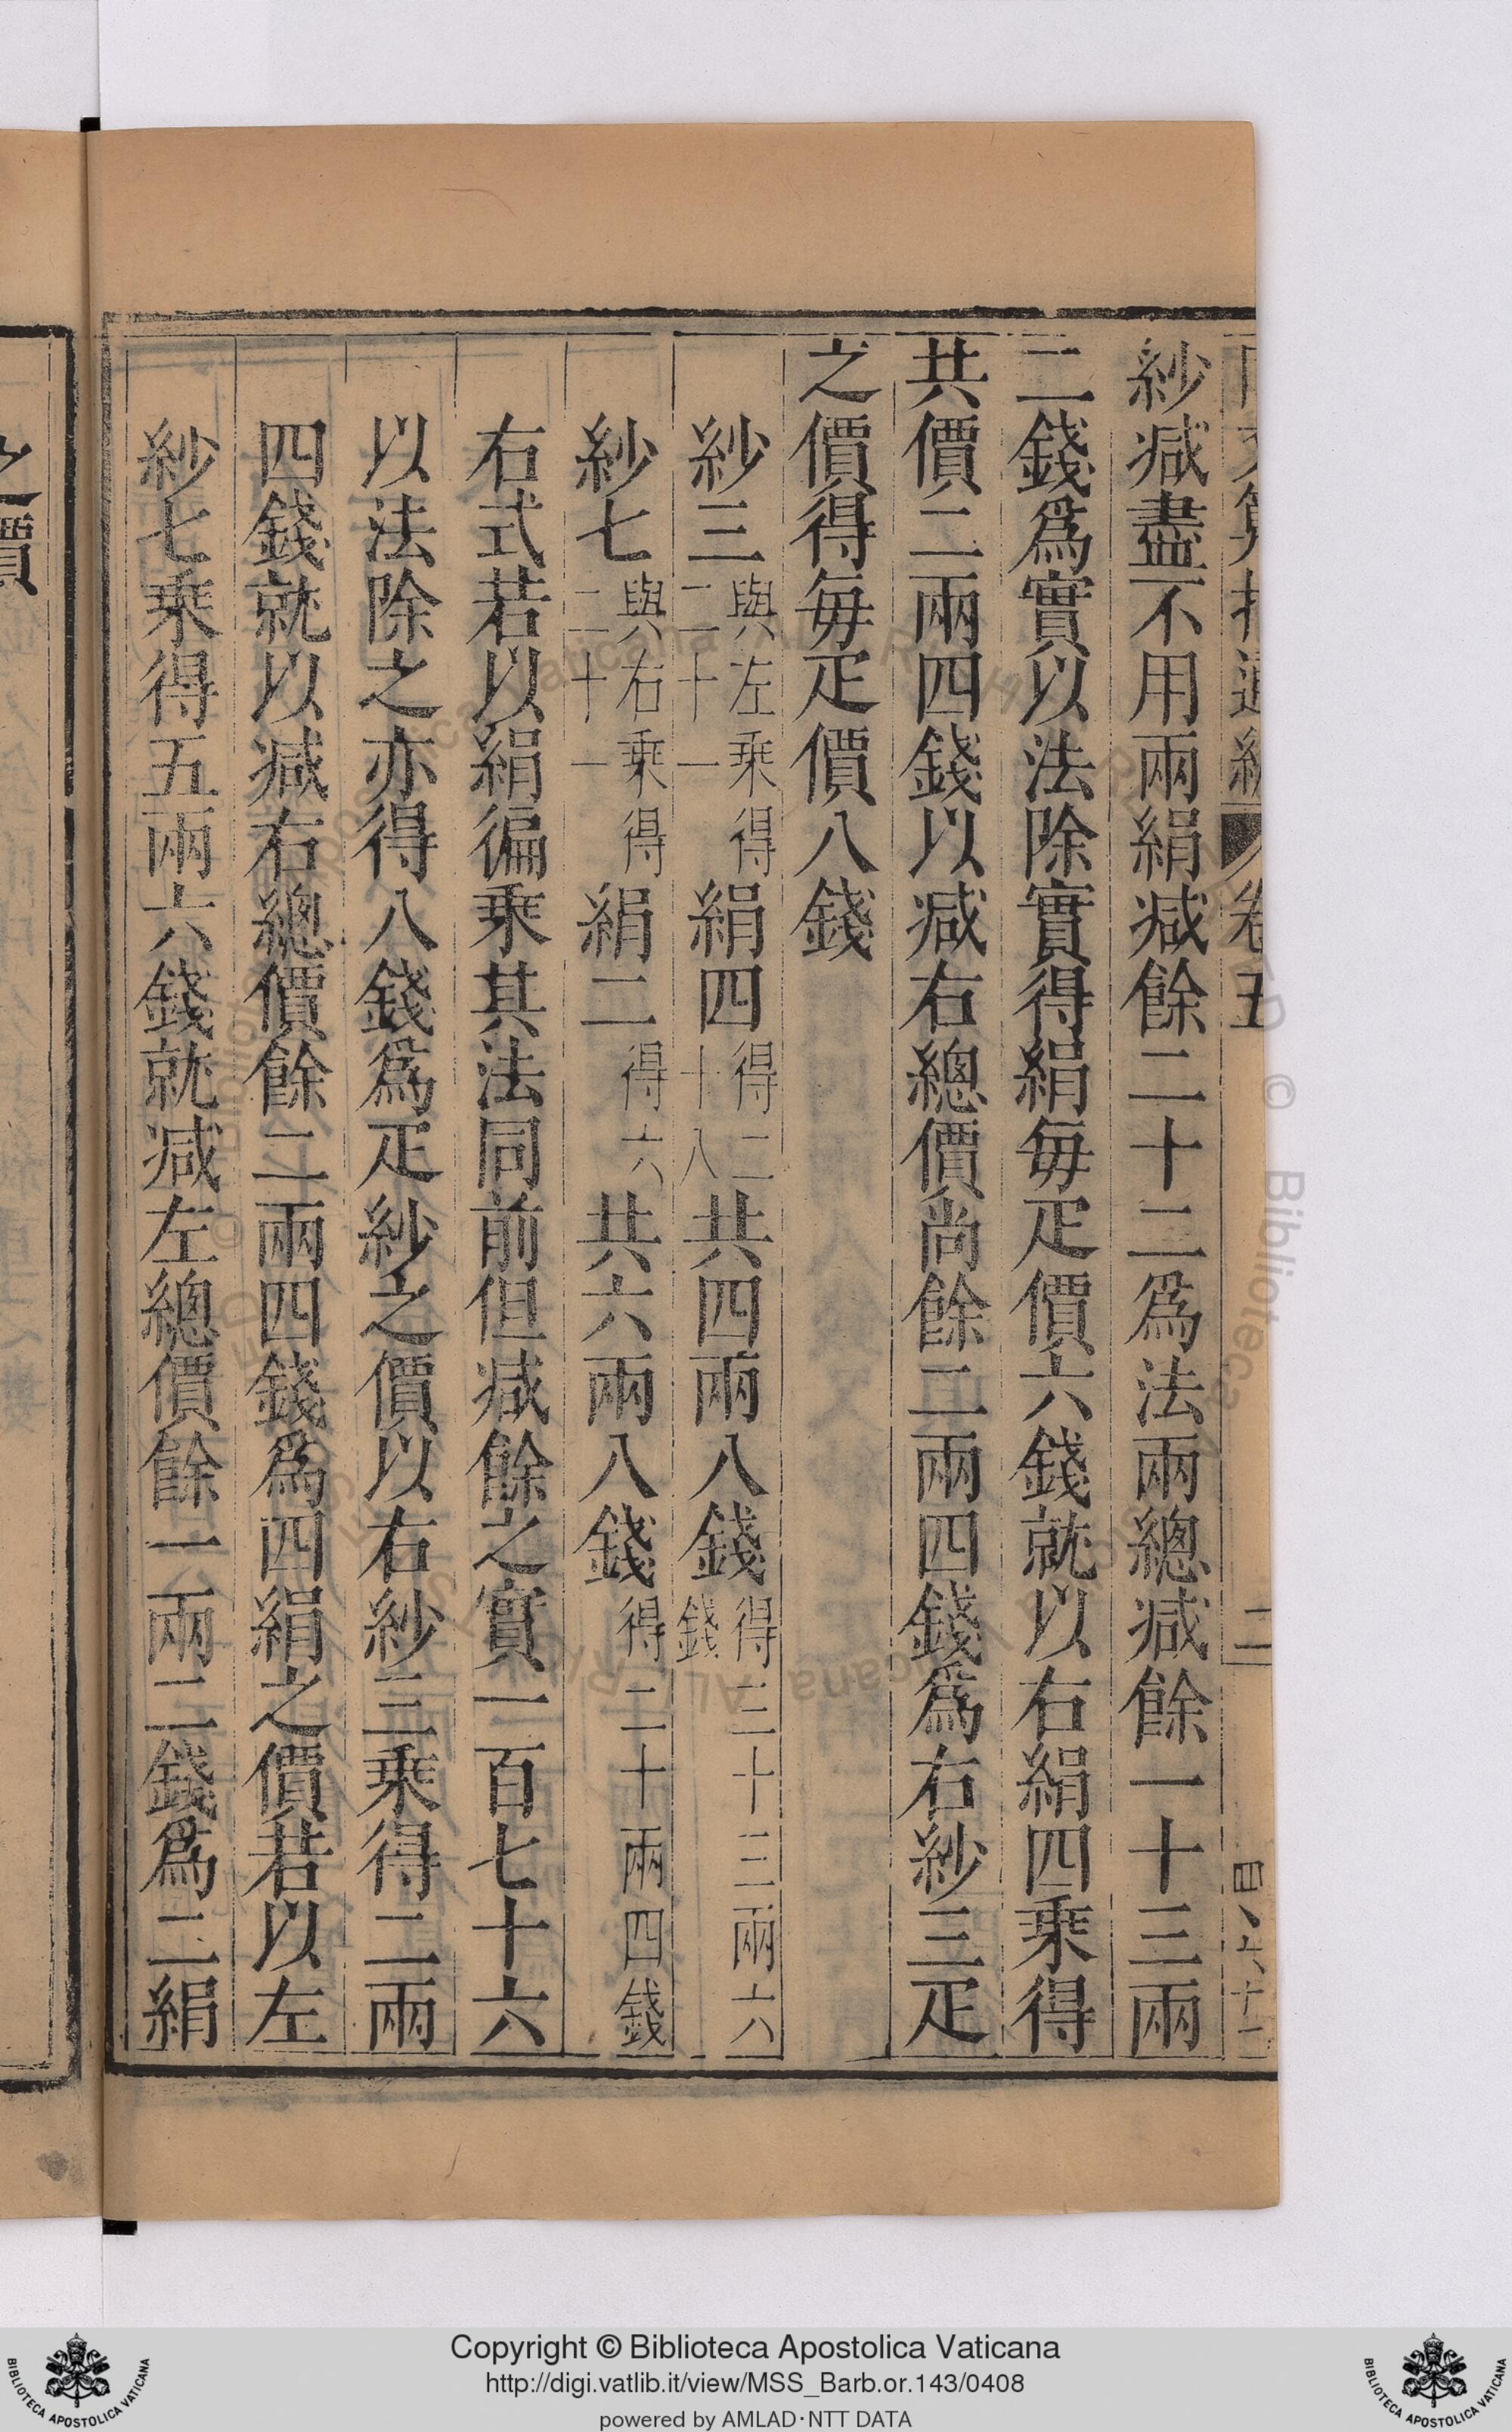 紗减盡不用兩絹减餘二十二爲法兩總减餘一十三兩
二錢爲實以法除實得絹每疋價六錢就以右絹四乗得
共價二兩四錢以减右總價尚餘二兩四錢爲右紗三疋
之價得每疋價八錢
紗三與左乗得二十一絹四得二十八共四兩八錢得三十三兩六錢
紗七與右乗得二十一絹二得六共六兩八錢得二十兩四錢
右式若以絹徧乗其法同前但减餘之實一百七十六
以法除之亦得八錢爲疋紗之價以右紗三乗得二兩
四錢就以减右總價餘二兩四錢爲四絹之價若以左
紗七乗得五兩六錢就减左總價餘一兩二錢爲二絹
卷五
二
四、六十二
之價
Copyright © Biblioteca Apostolica Vaticana
http://digi.vatlib.it/view/MSS_Barb.or.143/0408
powered by AMLAD·NTT DATA
BIBLIOTECA APOSTOLICA VATICANA
BIBLIOTECA APOSTOLICA VATICANA